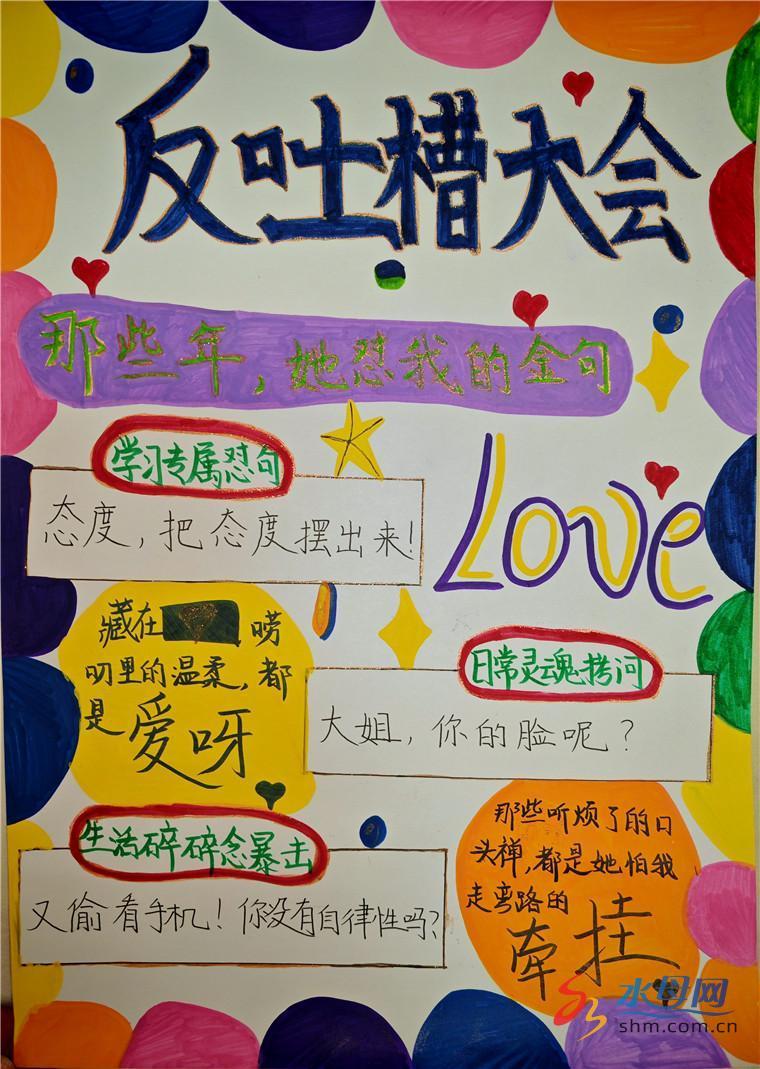 反吐槽大会
那些年，她怼我的金句
学习专属怼句
态度，把态度摆出来！
Love
藏在
唠
叨里的温柔，都
是爱呀
日常灵魂拷问
大姐，你的脸呢？
生活碎碎念暴击
又偷看手机！你没有自律性吗？
那些听烦了的口
头禅，都是她怕我
走弯路的
牵挂
水母网
shm.com.cn